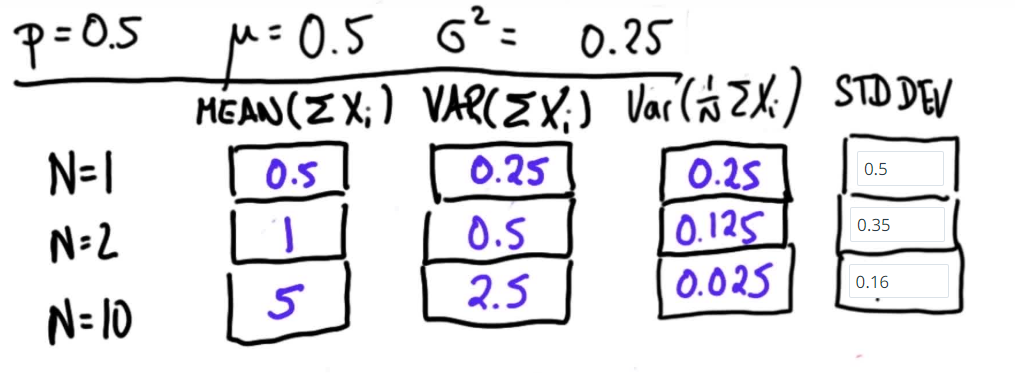 p=0.5 μ=0.5 σ²= 0.25
MEAN(ΣXᵢ) VAR(ΣXᵢ) Var(1/N ΣXᵢ) STD DEV
N=1 0.5 0.25 0.25 0.5
N=2 1 0.5 0.125 0.35
N=10 5 2.5 0.025 0.16